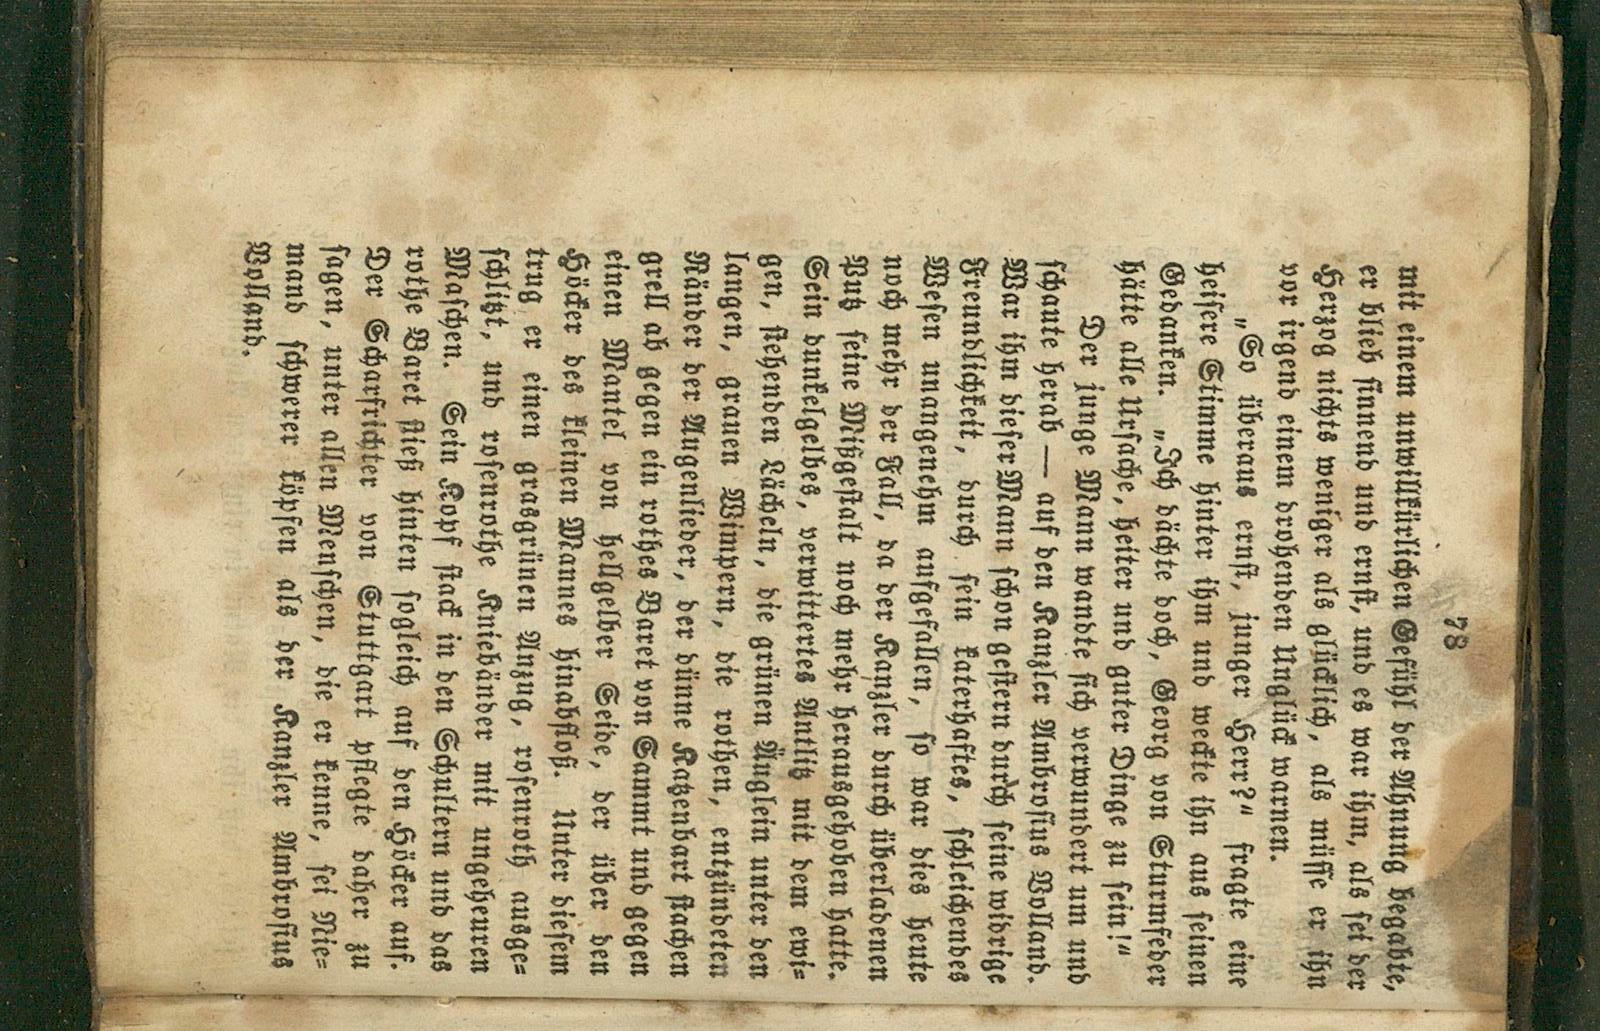 78
mit einem unwillkürlichen Gefühl der Ahnung begabte,
er blieb sinnend und ernst, und es war ihm, als sei der
Herzog nichts weniger als glücklich, als müsse er ihn
vor irgend einem drohenden Unglück warnen.
„So überaus ernst, junger Herr?“ fragte eine
heisere Stimme hinter ihm und weckte ihn aus seinen
Gedanken. „Ich dächte doch, Georg von Sturmfeder
hätte alle Ursache, heiter und guter Dinge zu sein!“
Der junge Mann wandte sich verwundert um und
schaute herab — auf den Kanzler Ambrosius Volland.
War ihm dieser Mann schon gestern durch seine widrige
Freundlichkeit, durch sein katerhaftes, schleichendes
Wesen unangenehm aufgefallen, so war dies heute
noch mehr der Fall, da der Kanzler durch überladenen
Putz seine Mißgestalt noch mehr herausgehoben hatte.
Sein dunkelgelbes, verwittertes Antlitz mit dem ewi-
gen, stehenden Lächeln, die grünen Änglein unter den
langen, grauen Wimpern, die rothen, entzündeten
Ränder der Augenlieder, der dünne Katzenbart stachen
grell ab gegen ein rothes Baret von Sammt und gegen
einen Mantel von hellgelber Seide, der über den
Höcker des kleinen Mannes hinabfloß. Unter diesem
trug er einen grasgrünen Anzug, rosenroth ausge-
schlitzt, und rosenrothe Kniebänder mit ungeheuren
Maschen. Sein Kopf stack in den Schultern und das
rothe Baret stieß hinten sogleich auf den Höcker auf.
Der Scharfrichter von Stuttgart pflegte daher zu
sagen, unter allen Menschen, die er kenne, sei Nie-
mand schwerer köpfen als der Kanzler Ambrosius
Volland.